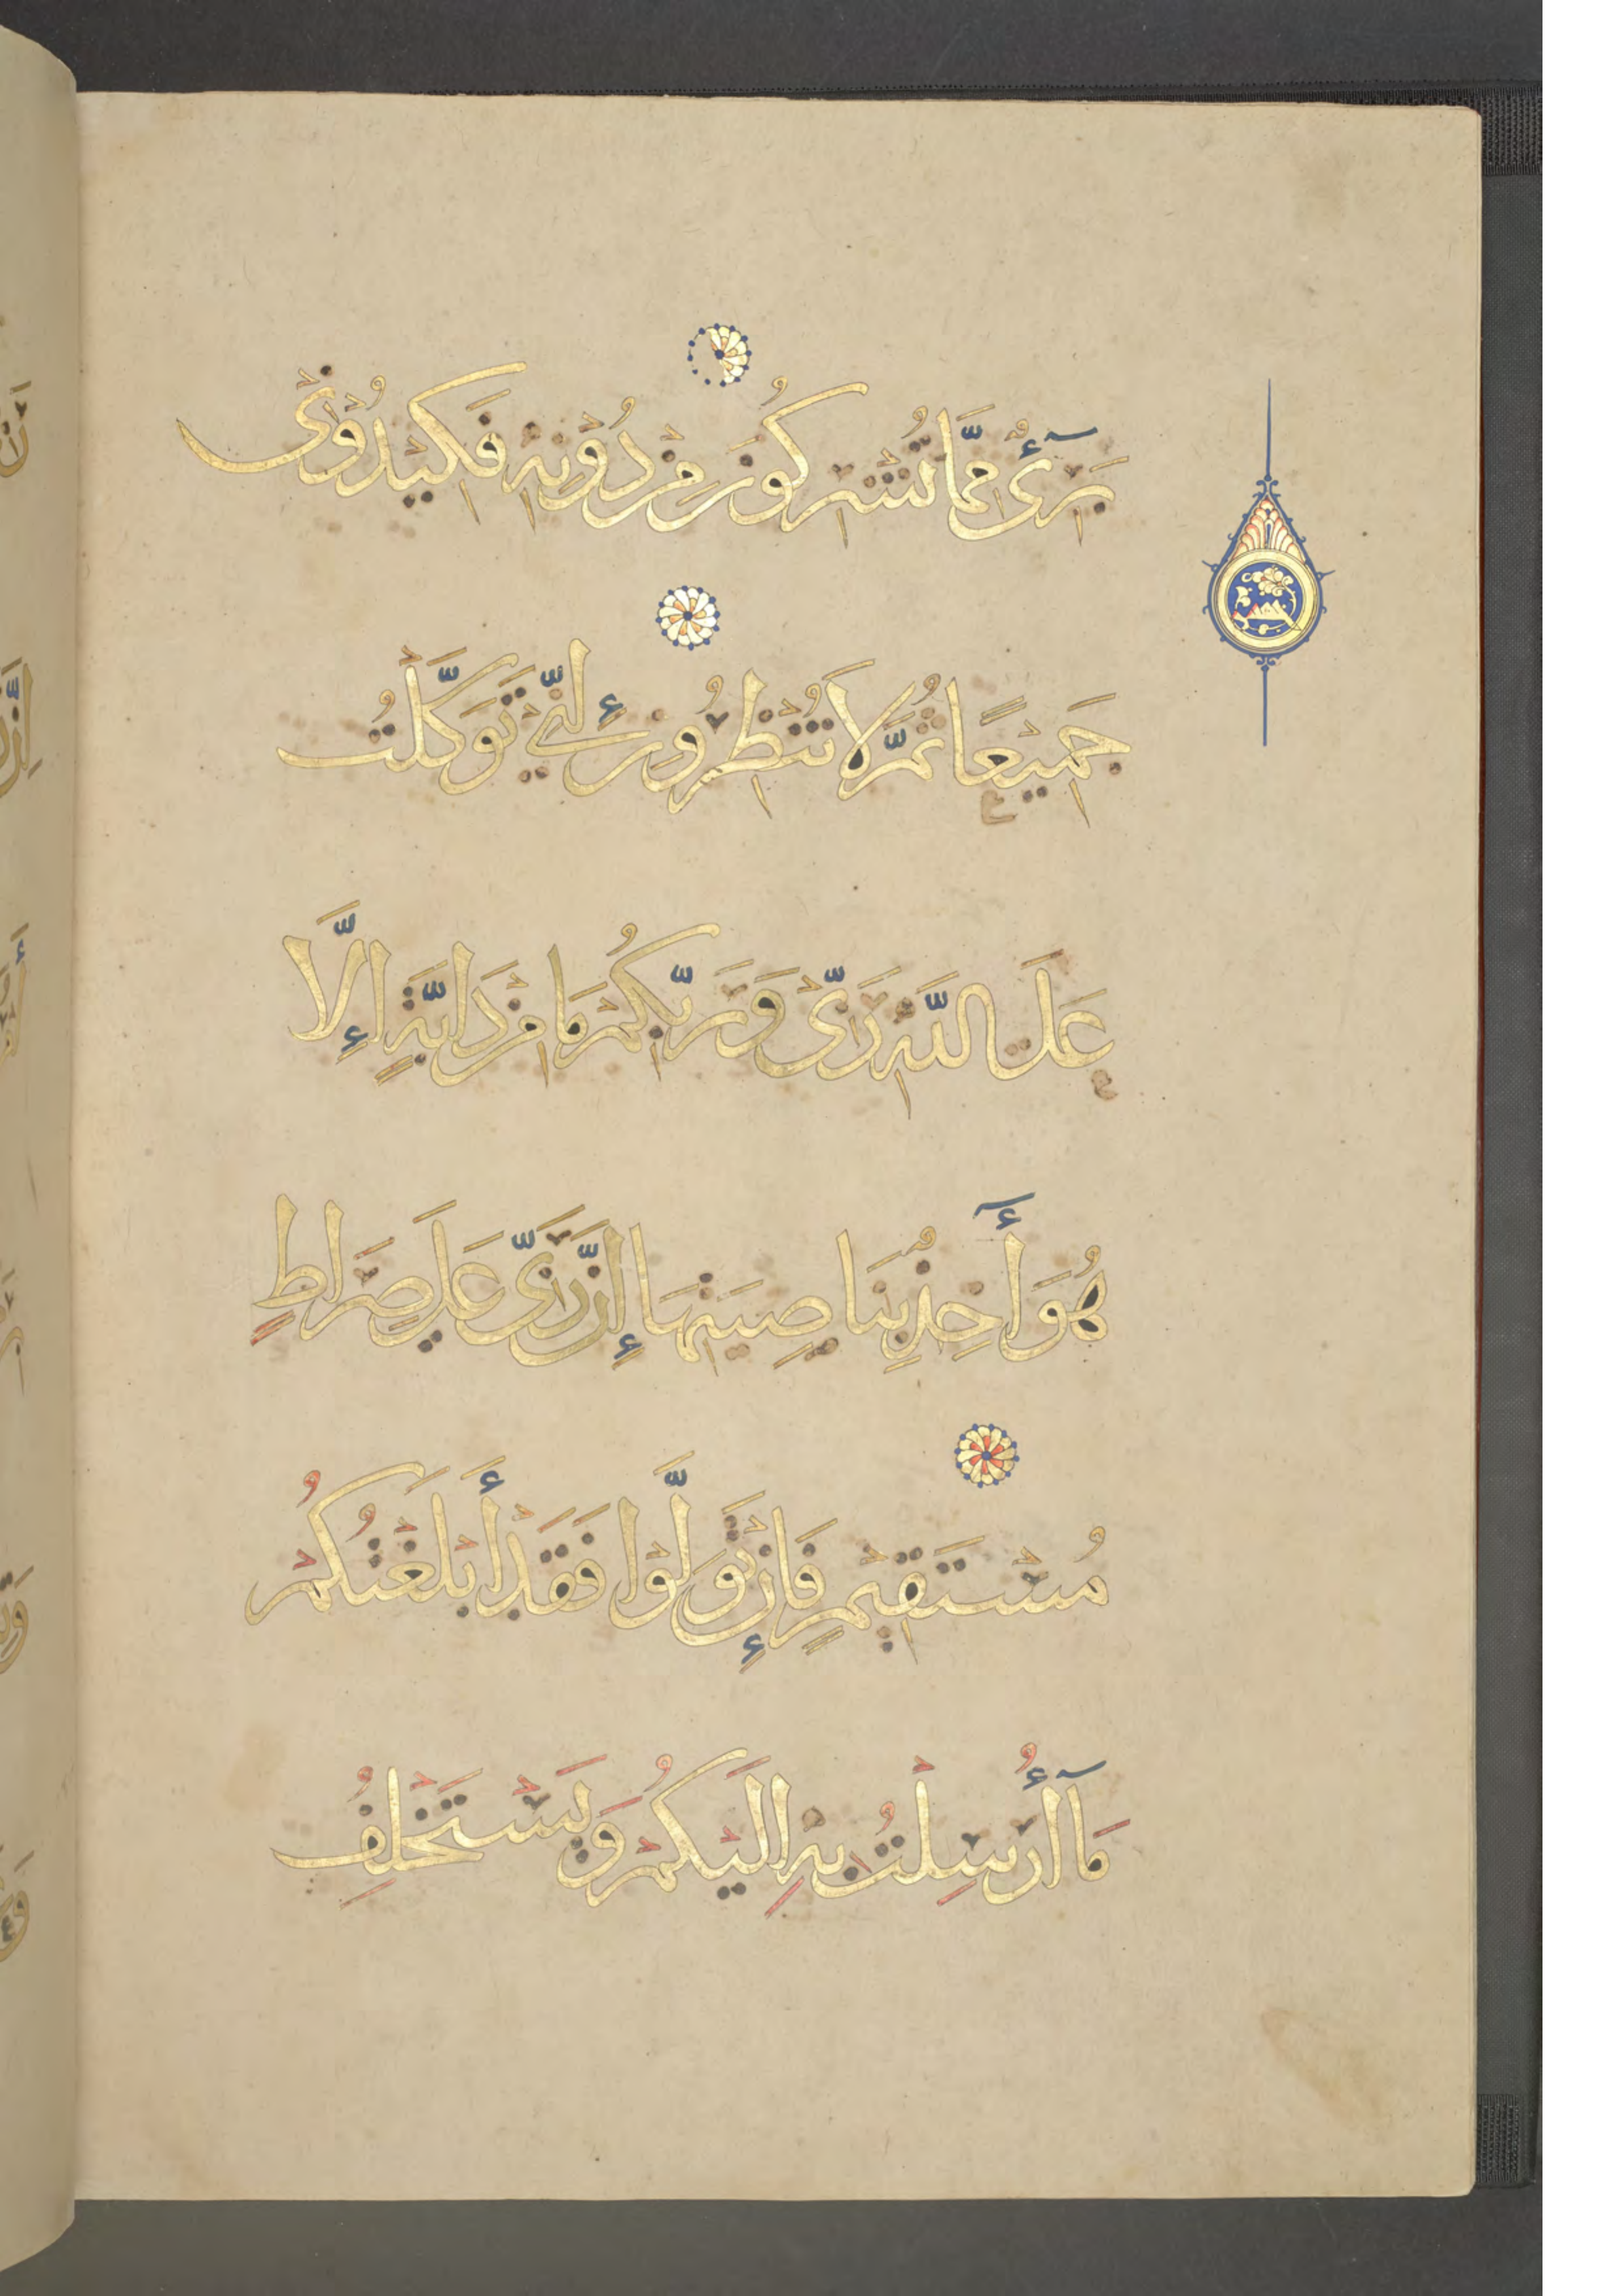 بَرِىٓءٌ مِّمَّا تُشْرِكُونَ مِنْ دُوْنِهِ فَكِيْدُوْنِىْ
جَمِيْعًا ثُمَّ لَا تُنْظِرُوْنِ إِنِّيْ تَوَكَّلْتُ
عَلَى اللَّهِ رَبِّىْ وَرَبِّكُمْ مَا مِنْ دَابَّةٍ إِلَّا
هُوَ أٓخِذٌ بِنَاصِيَتِهَا إِنَّ رَبِّىْ عَلَى صِرَاطٍ
مُسْتَقِيْمٍ فَإِنْ تَوَلَّوْا فَقَدْ أَبْلَغْتُكُمْ
مَآ أُرْسِلْتُ بِهِ إِلَيْكُمْ وَيَسْتَخْلِفُ